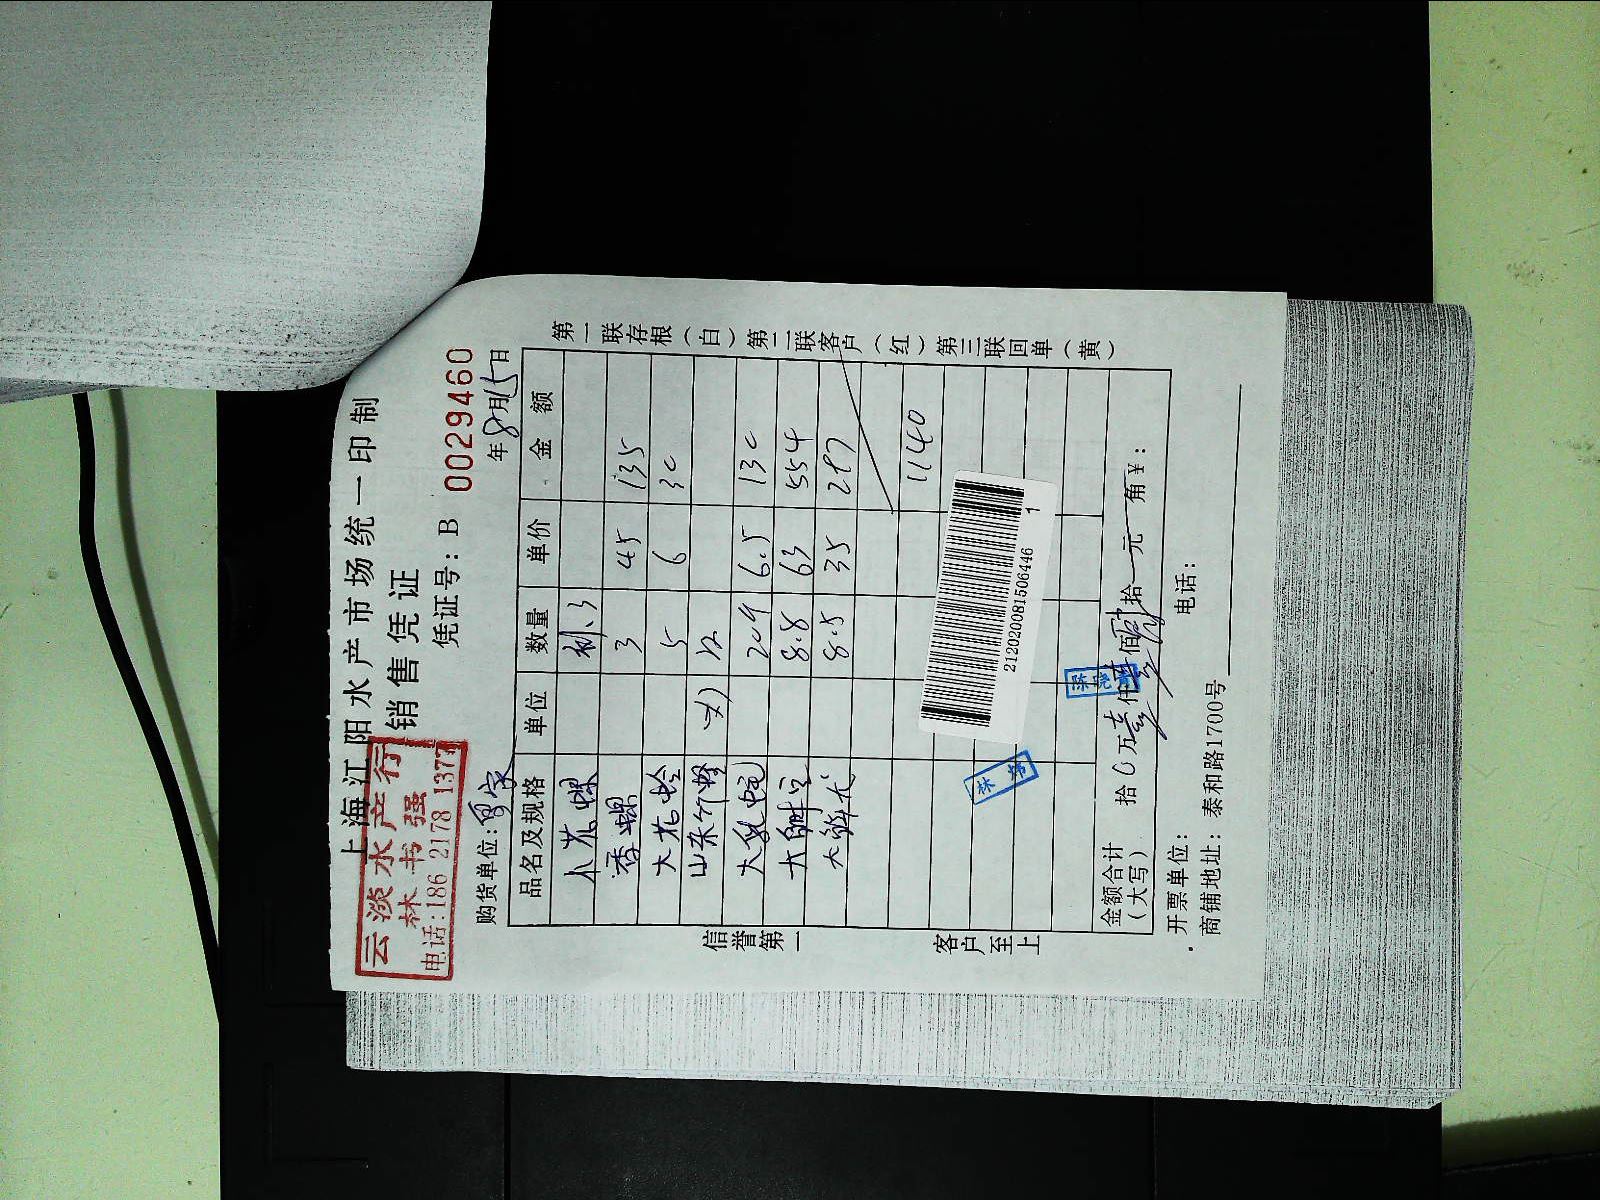 上海江阳水产市场统一印制
销售凭证
云淡水产行
林书强
电话:186 2178 1377
凭证号:B 0029460
购货单位:
年8月15日
品名及规格 单位 数量 单价 金额
小花螺
香螺 3 45 135
大花蛤 5 6 30
山东竹蛏
大 6.5 130
大鲜 8.8 63 554
大 8.5 35 297
1140
2120200815064461
金额合计
(大写) 拾0万壹仟壹佰 拾 元 角¥:
开票单位: 电话:
商铺地址:泰和路1700号
信誉第一
客户至上
第一联存根(白)第二联客户(红)第三联回单(黄)